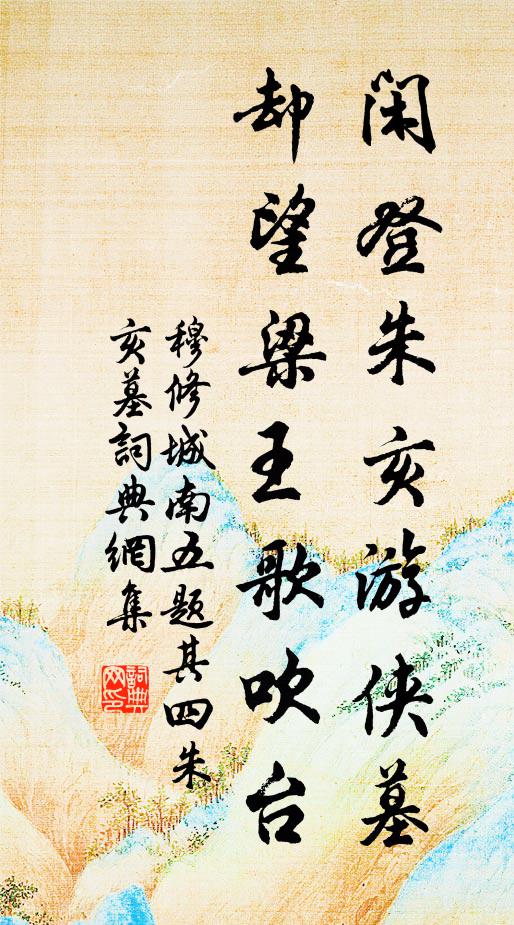 闲登朱亥游侠墓
却望梁王歌吹台
穆修城南五题其四朱
亥墓詞典網集
詞典网印